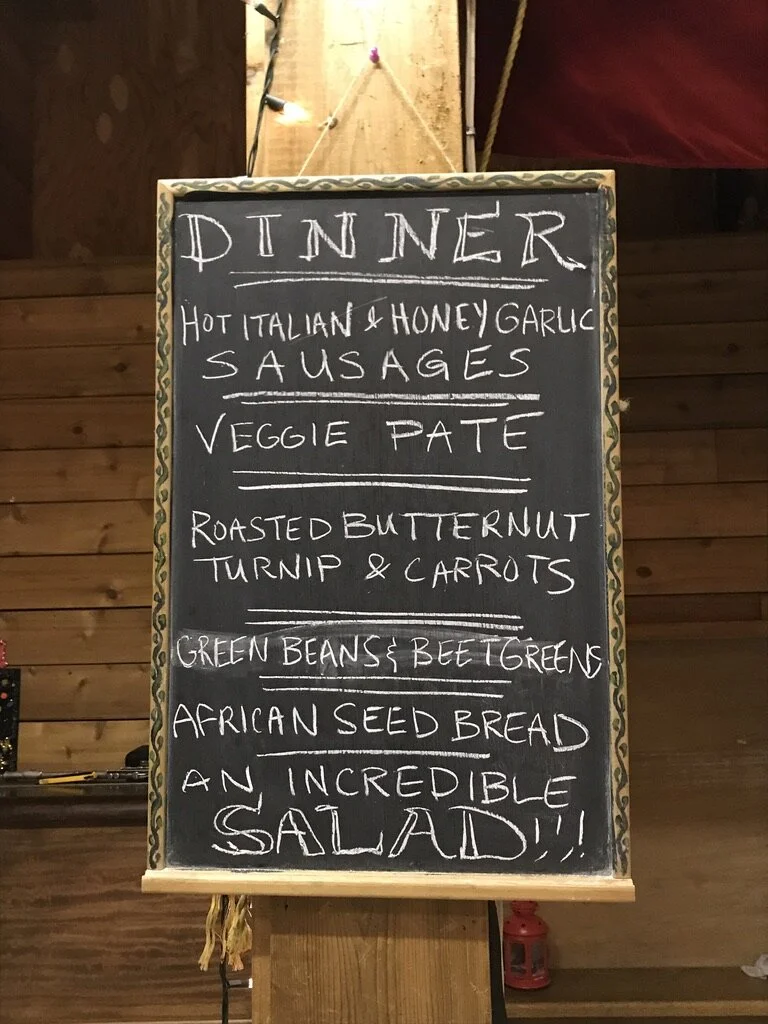 DINNER
HOT ITALIAN & HONEY GARLIC
SAUSAGES
VEGGIE PATE
ROASTED BUTTERNUT
TURNIP & CARROTS
GREEN BEANS & BEET GREENS
AFRICAN SEED BREAD
AN INCREDIBLE
SALAD!!!